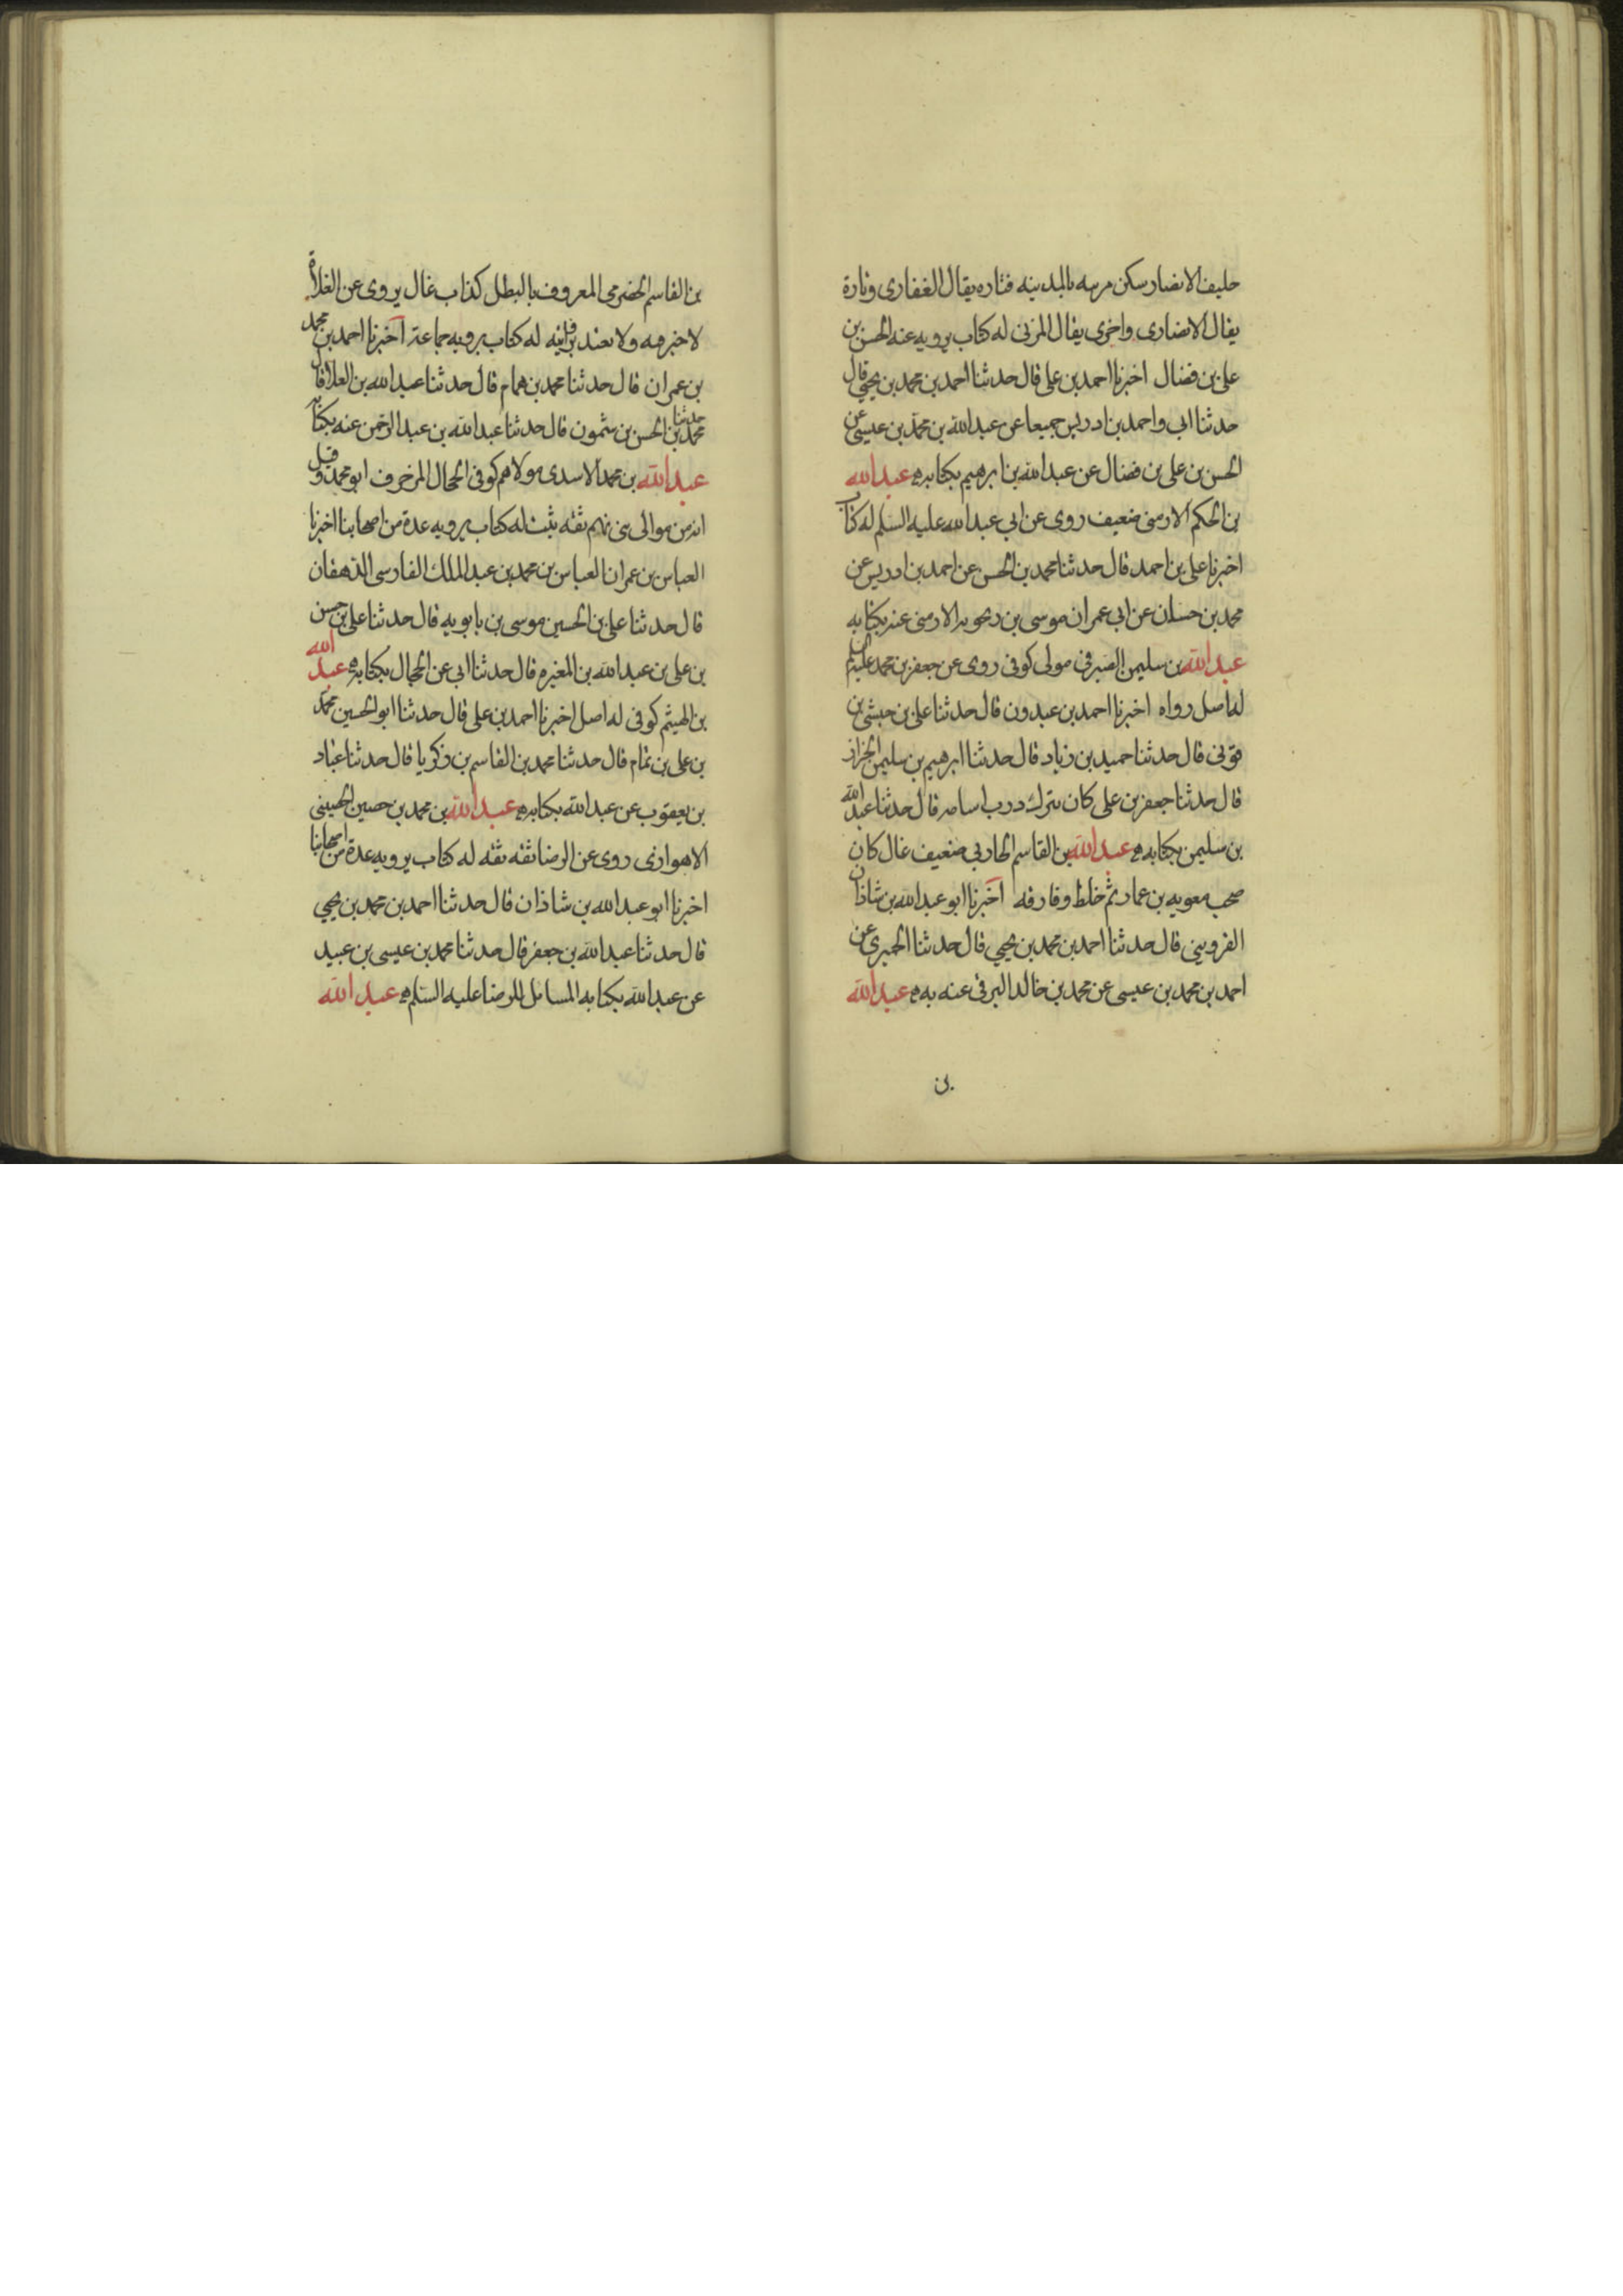 حليف الانصار سكن مزينه بالمدينه فتاره يقال الغفارى وتارة
يقال الانصارى واخرى يقال المزنى له كتاب يرويه عنه الحسن بن
على بن فضال اخبرنا احمد بن على قال حدثنا احمد بن محمد بن يحيى قال
حدثنا ابى واحمد بن ادريس جميعا عن عبدالله بن محمد بن عيسى عن
الحسن بن على بن فضال عن عبدالله بن ابرهيم بكتابه عبدالله
بن الحكم الارمنى ضعيف روى عن ابى عبدالله عليه السلم له كتاب
اخبرنا على بن احمد قال حدثنا محمد بن الحسن عن احمد بن ادريس عن
محمد بن حسان عن ابى عمران موسى بن الارمنى عنه بكتابه
عبدالله بن سليمن الصيرفى مولى كوفى روى عن جعفر بن محمد عليه السلم
له اصل رواه اخبرنا احمد بن عبدون قال حدثنا على بن حبشى بن
قونى قال حدثنا حميد بن زياد قال حدثنا ابرهيم بن سليمن الخزاز
قال حدثنا جعفر بن على كان ينزل درب اسامه قال حدثنا عبدالله
بن سليمن بكتابه عبدالله بن القاسم الحارثى ضعيف غال كان
صحب معويه بن عمار ثم خلط وفارقه اخبرنا ابو عبدالله بن شاذان
القزوينى قال حدثنا احمد بن محمد بن يحيى قال حدثنا الحميرى عن
احمد بن محمد بن عيسى عن محمد بن خالد البرقى عنه به عبدالله
بن
بن القاسم الحضرمى المعروف بالبطل كذاب غال يروى عن الغلاة
لا خير فيه ولا يعتد بروايته له كتاب يرويه جماعة اخبرنا احمد بن محمد
بن عمران قال حدثنا محمد بن همام قال حدثنا عبدالله بن العلا قال
حدثنا محمد بن الحسن بن شمون قال حدثنا عبدالله بن عبدالرحمن عنه بكتابه
عبدالله بن محمد الاسدى مولاهم كوفى الحجال المزخرف ابو محمد وقيل
انه من موالى بنى تهم ثقه ثبت له كتاب يرويه عدة من اصحابنا اخبرنا
العباس بن عمران العباس بن محمد بن عبدالملك الفارسى الدهقان
قال حدثنا على بن الحسين موسى بن بابويه قال حدثنا على بن حسن
بن على بن عبدالله بن المغيره قال حدثنا ابى عن الحجال بكتابه عبدالله
بن الهيثم كوفى له اصل اخبرنا احمد بن على قال حدثنا ابو الحسين محمد
بن على بن تمام قال حدثنا محمد بن القاسم بن زكريا قال حدثنا عباد
بن يعقوب عن عبدالله بكتابه عبدالله بن محمد بن حصين الحصينى
الاهوازى روى عن الرضا ثقه ثقه له كتاب يرويه عدة من اصحابنا
اخبرنا ابو عبدالله بن شاذان قال حدثنا احمد بن محمد بن يحيى
قال حدثنا عبدالله بن جعفر قال حدثنا محمد بن عيسى بن عبيد
عن عبدالله بكتابه المسائل للرضا عليه السلم عبدالله